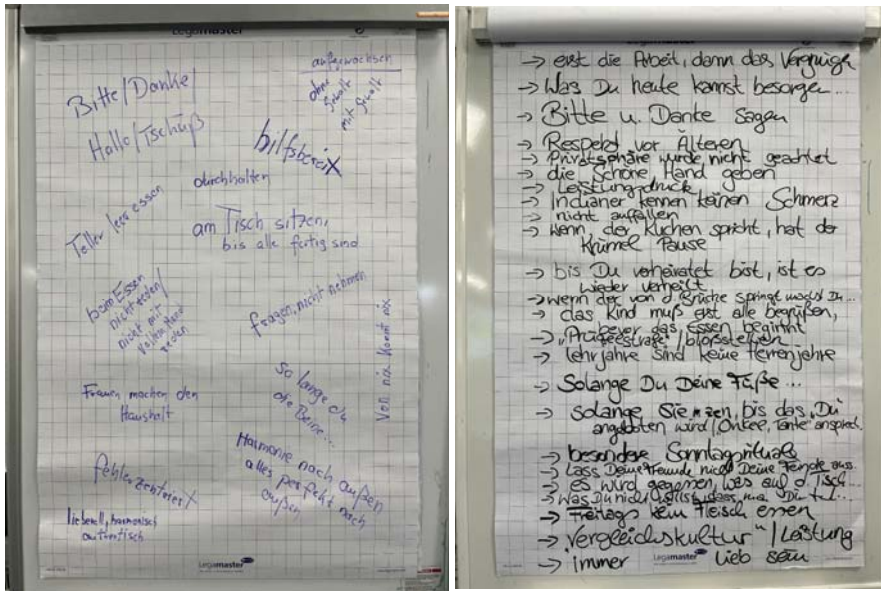 Legamaster
aufgewachsen
ohne
Gewalt
mit Gewalt
Bitte/Danke/
Hallo/Tschüß
hilfsbereit
durchhalten
Teller leer essen
am Tisch sitzen,
bis alle fertig sind
beim Essen
nicht reden/
nicht mit
vollem Mund
reden
fragen, nicht nehmen
Von nix kommt nix
So lange du
die Beine...
Frauen machen den
Haushalt
Harmonie nach außen
alles perfekt nach
außen
fehlerzentriert
liebevoll, harmonisch
autoritärisch
Legamaster
→ erst die Arbeit, dann das Vergnügn
→ Was Du heute kannst besorgen...
→ Bitte u. Danke sagen
→ Respekt vor Älteren
→ Privatsphäre wurde nicht geachtet
→ die Schöne Hand geben
→ Leistungsdruck
→ Indianer kennen keinen Schmerz
→ nicht auffallen
→ Wenn der Kuchen spricht, hat der
Krümel Pause
→ bis Du verheiratet bist, ist es
wieder verheilt
→ wenn der von d. Brücke springt machst Du...
→ das Kind muß erst alle begrüßen,
bevor das Essen beginnt
→ "Prügelstrafe"/bloßstellen
→ Lehrjahre sind keine Herrenjahre
→ Solange Du Deine Füße...
→ Solange Siezen, bis das "Du"
angeboten wird/Onkel, Tante ansprech.
→ besondere Sonntagsrituale
→ Lass Deine Freunde nicht Deine Feinde aus...
→ es wird gegessen, was auf d. Tisch...
→ Was Du nicht willst
→ Freitags kein Fleisch essen
→ "Vergleichskultur"/Leistung
→ immer lieb sein
Legamaster